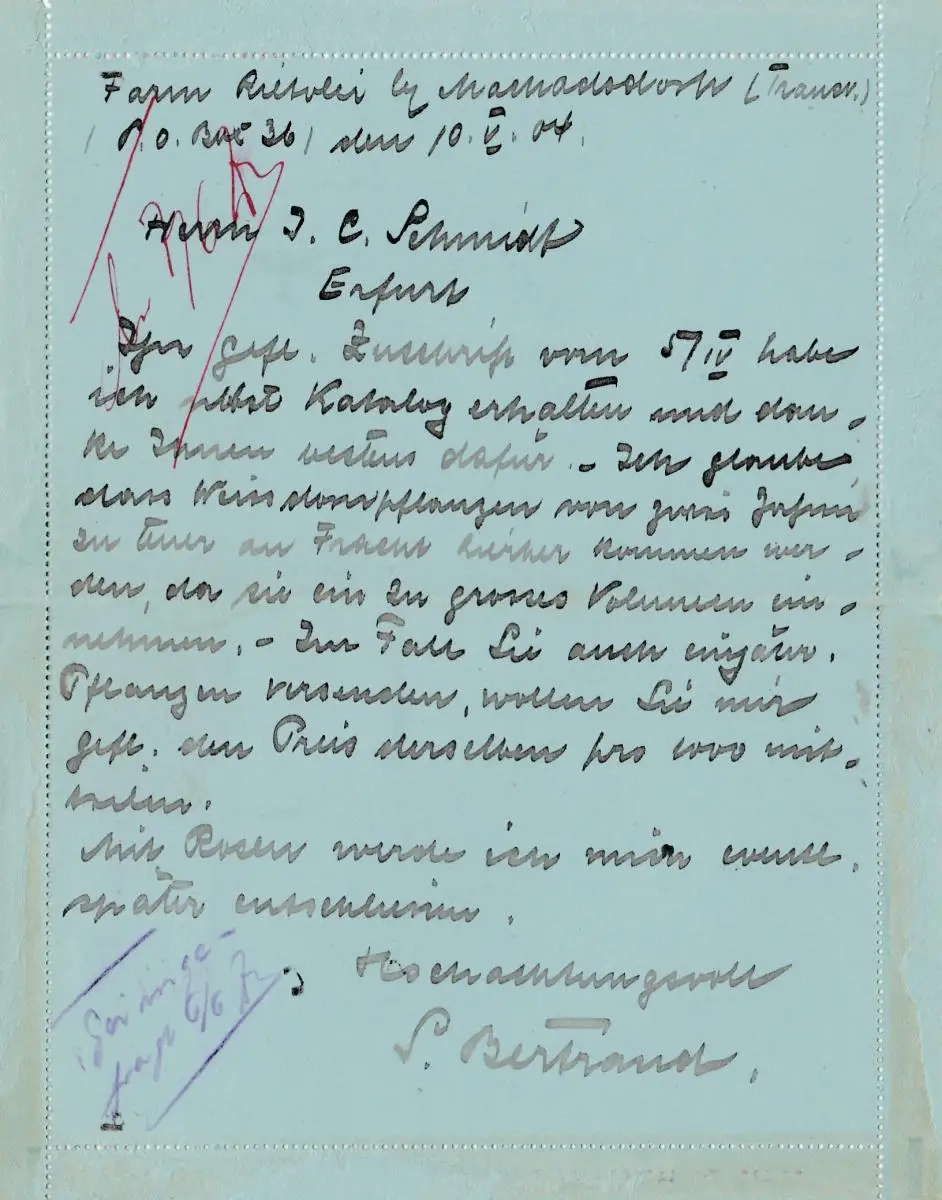 Farm Rietvlei by Machadodorp (Transv.)
(P. O. Box 36) den 10. V. 04.
Herrn J. C. Schmidt
Erfurt
Ihre gefl. Zuschrift vom 5/IV habe
ich nebst Katalog erhalten und dan-
ke Ihnen bestens dafür. - Ich glaube
dass Weissdornpflanzen von zwei Jahren
zu teuer an Fracht hierher kommen wer-
den, da sie ein zu grosses Volumen ein-
nehmen. - Im Fall Sie auch einjähr.
Pflanzen versenden, wollen Sie mir
gefl. den Preis derselben pro 1000 mit-
teilen.
Mit Rosen werde ich mich event.
später entschliessen.
Hochachtungsvoll
S. Bertrand.
6/6